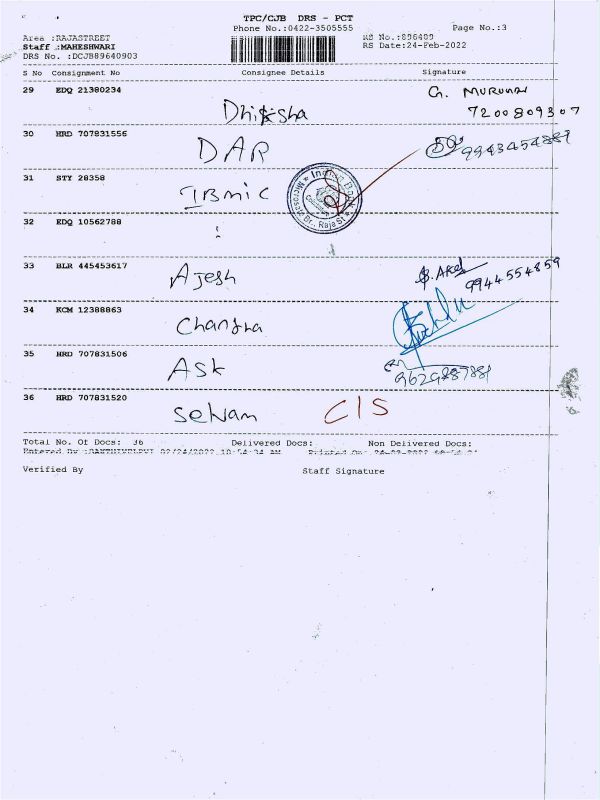 TPC/CJB DRS - PCT
Phone No.:0422-3505555 Page No.:3
Area :RAJASTREET RS No.:896409
Staff :MAHESHWARI RS Date:24-Feb-2022
DRS No. :DCJB89640903
S No Consignment No Consignee Details Signature
29 EDQ 21380234 G. MURUGAN
Dhiksha 7200809307
30 HRD 707831556
DAR 9943454889
31 STY 28358
IBMIC
32 EDQ 10562788
33 BLR 445453617
Ajesh 9944554859
34 KCM 12388863
Chandra
35 HRD 707831506
ASK
36 HRD 707831520
Selvam CIS
Total No. Of Docs: 36 Delivered Docs: Non Delivered Docs:
Verified By Staff Signature